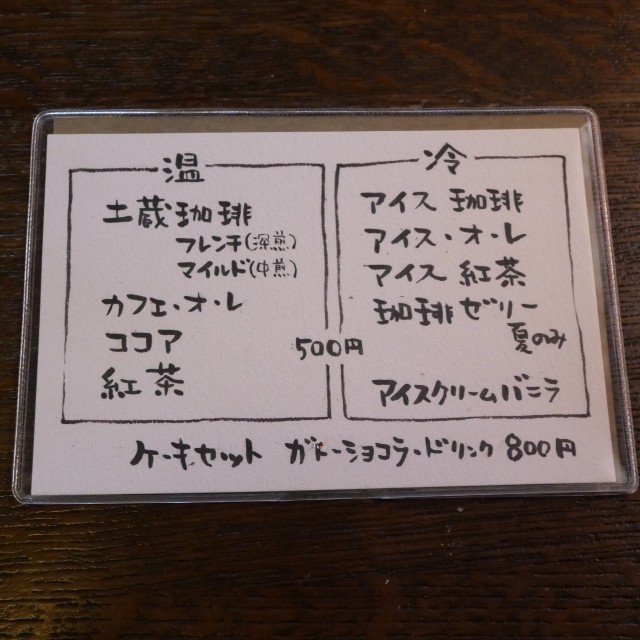 温
土蔵珈琲
フレンチ(深煎)
マイルド(中煎)
カフェ・オ・レ
ココア
紅茶
500円
冷
アイス 珈琲
アイス・オ・レ
アイス 紅茶
珈琲ゼリー
夏のみ
アイスクリームバニラ
ケーキセット ガトーショコラ・ドリンク 800円